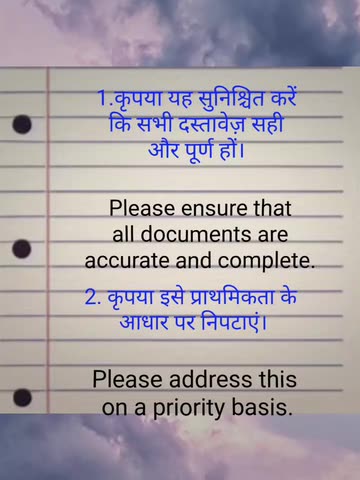 1.कृपया यह सुनिश्चित करें
कि सभी दस्तावेज़ सही
और पूर्ण हों।
Please ensure that
all documents are
accurate and complete.
2. कृपया इसे प्राथमिकता के
आधार पर निपटाएं।
Please address this
on a priority basis.